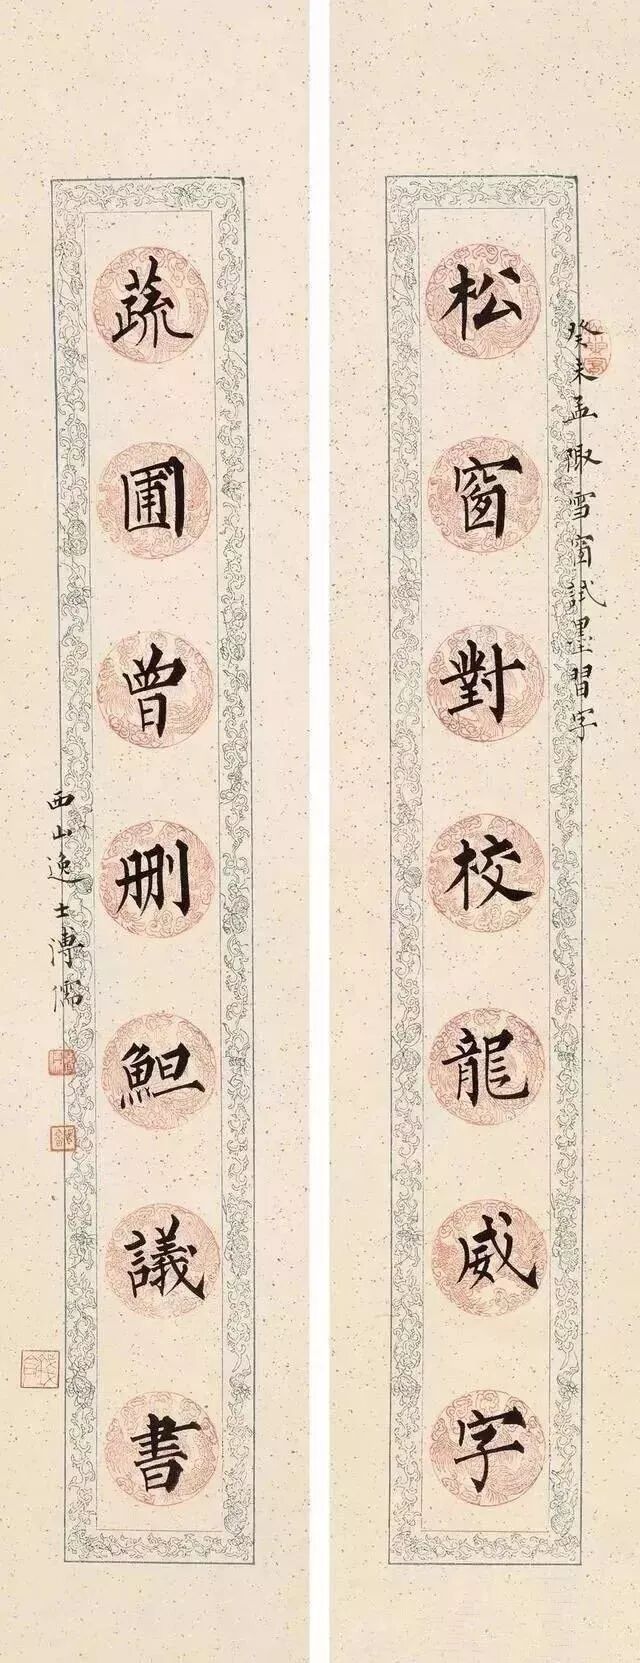 癸未孟陬雪窗試墨習字
松窗對校龍威字
蔬圃曾删䱇議書
西山逸士溥儒